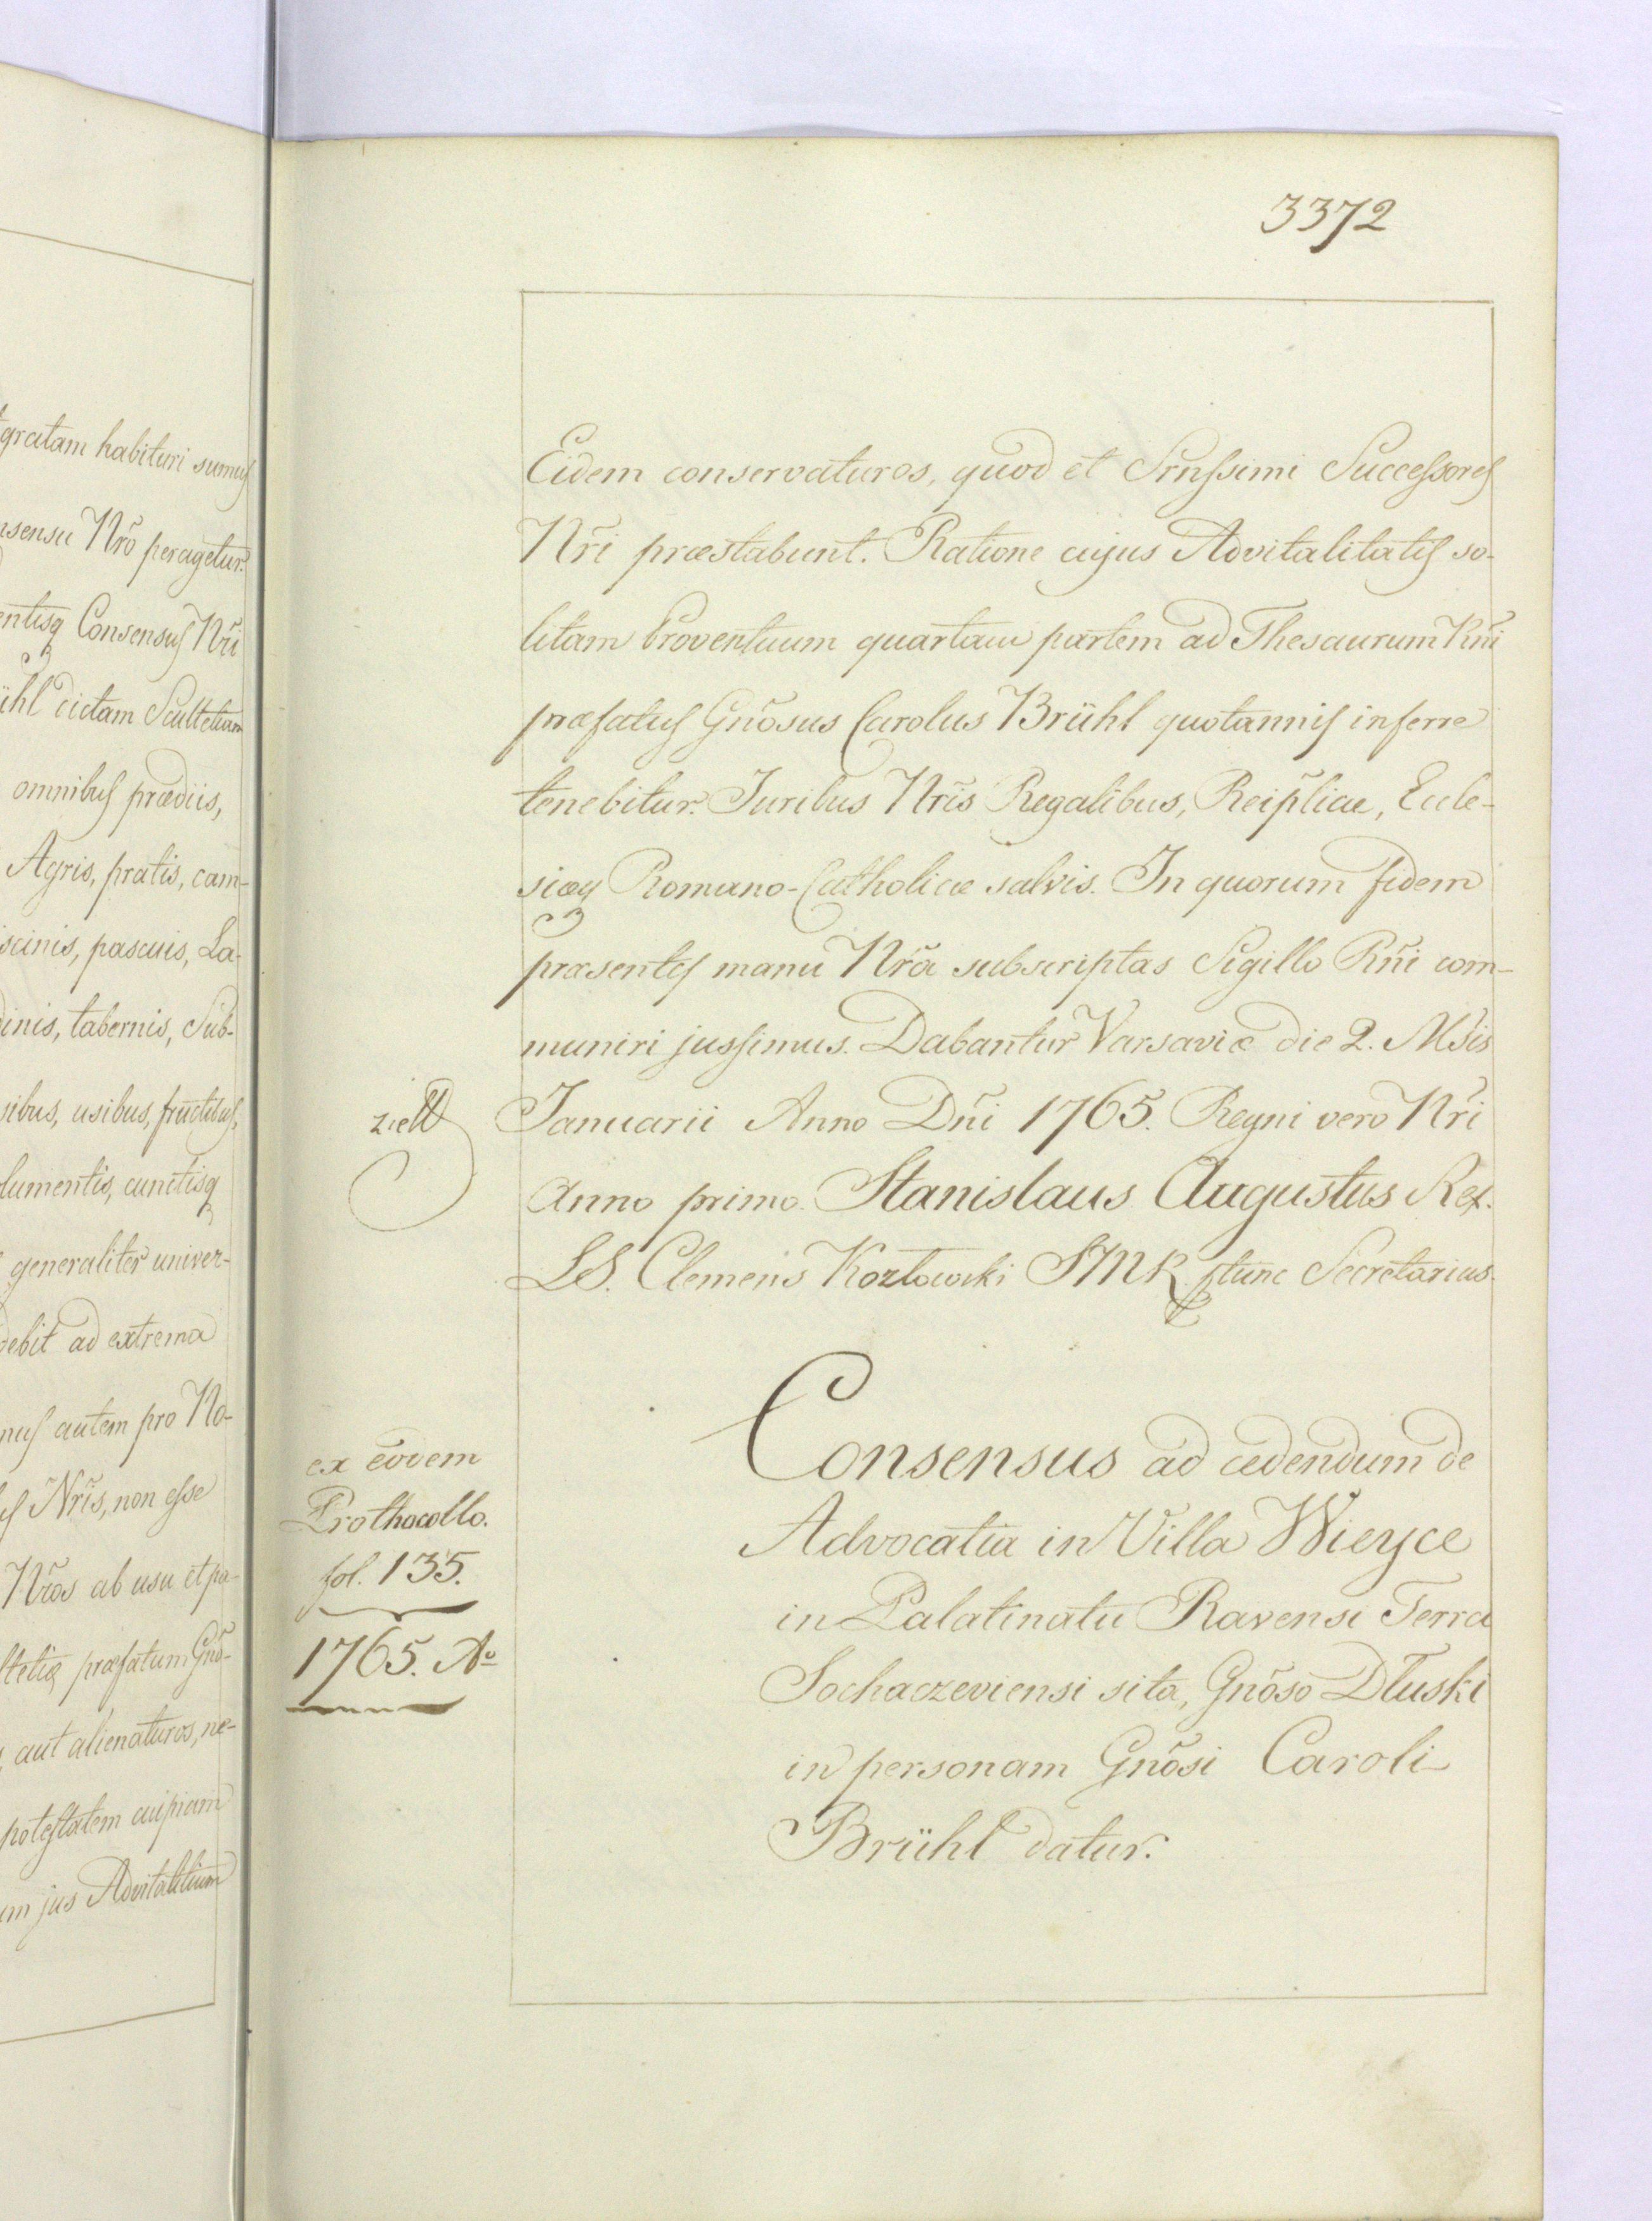 gratam habituri sumus
nsensu Nrõ peragetur.
entisq Consensus Nri
ühl dictam Scultetiam
omnibus prædiis,
Agris, pratis, cam-
scinis, pascuis, La-
dinis, tabernis, Sub-
sibus, usibus, fructibus,
lumentis, cunctisq
generaliter univer-
debit ad extrema
nus autem pro No-
Nrĩs, non esse
Nrõs ab usu et pa-
ltetiæ præfatum Gnõ-
aut alienaturos, ne-
potestatem cuipiam
um jus Advitalitium
3372
Eidem conservaturos, quod et Srnssimi Successores
Nrĩ præstabunt. Ratione cujus Advitalitatis so-
litam Proventuum quartam partem ad Thesaurum Rñi
præfatus Gnõsus Carolus Brühl quotannis inferre
tenebitur. Juribus Nrĩs Regalibus, Reip̃licae, Eccle-
siæq Romano-Catholicæ salvis. In quorum fidem
præsentes manu Nrã subscriptas Sigillo Rñi com-
muniri jussimus. Dabantur Varsaviæ die 2. Msis
Januarii Anno Dñi 1765. Regni vero Nrĩ
Anno primo. Stanislaus Augustus Rex.
LS. Clemens Kozłowski SMR ptunc Secretarius.
Consensus ad cedendum de
Advocatia in Villa Wieyce
in Palatinatu Ravensi Terra
Sochaczeviensi sita, Gnõso Dłuski
in personam Gnõsi Caroli
Brühl datur.
ex eodem
Prothocollo.
fol. 135.
1765. Ao